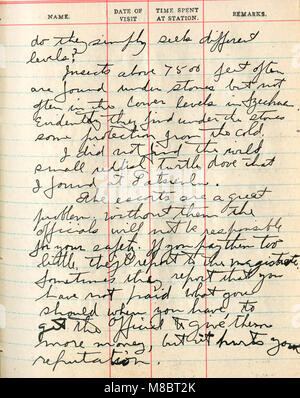 NAME. DATE OF VISIT TIME SPENT AT STATION. REMARKS.
do they simply seek different
levels?
Insects above 7500 feet often
are found under stones but not
often in the lower levels in Szechuan.
Evidently they find under the stones
some protection from the cold.
I did not find the
small turtle dove that
I found at
The escorts are a great
problem without them the
officials will not be responsible
for your safety. If you pay them too
little, they report to the magistrate.
Sometimes they report that you
have not paid what you
should when you have, to
get the official to give them
more money, but it hurts your
reputation.
alamy
Image ID: M8BT2K
www.alamy.com